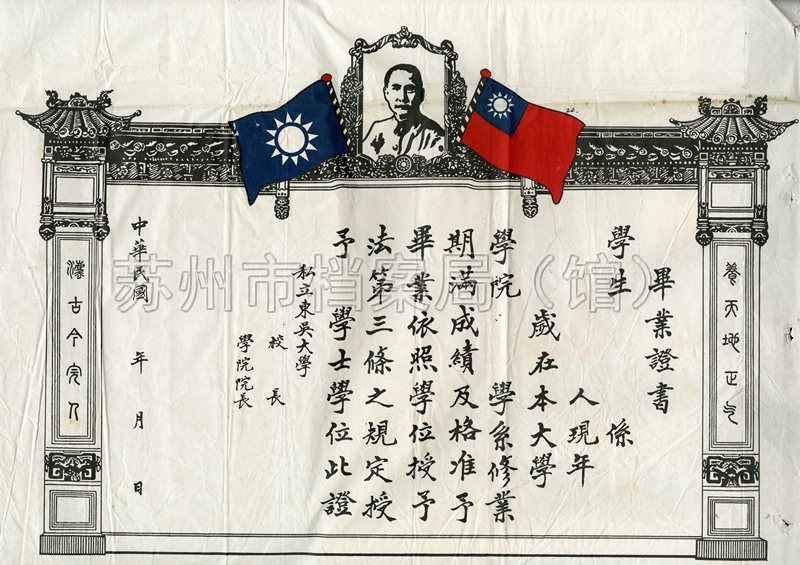 畢業證書
學生 係
人現年
歲在本大學
學院 學系修業
期滿成績及格准予
畢業依照學位授予
法第三條之規定授
予 學士學位此證
私立東吳大學
校長
學院院長
中華民國 年 月 日
養天地正氣
法古今完人
苏州市档案局（馆）